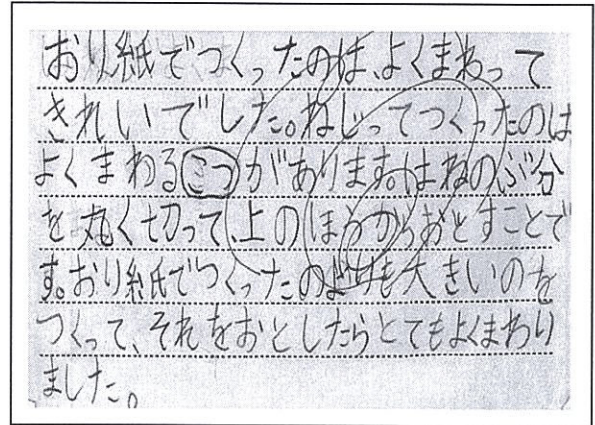 おり紙でつくったのは、よくまわって
きれいでした。ねじってつくったのは
よくまわるこつがあります。はねのぶ分
を丸く切って、上のほうからおとすことで
す。おり紙でつくったのよりも大きいのを
つくって、それをおとしたらとてもよくまわり
ました。